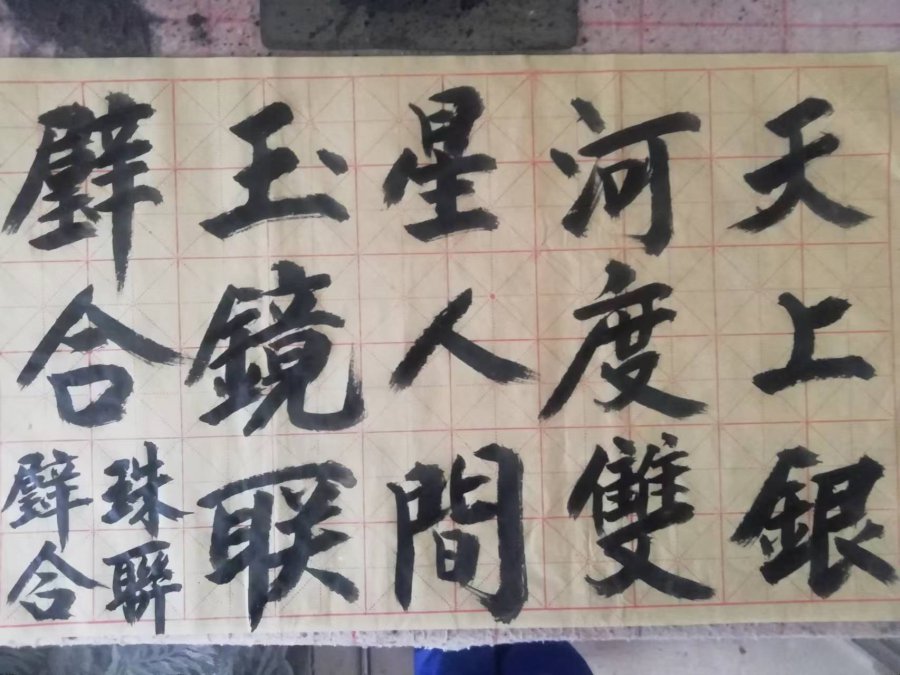 天上銀
河度雙
星人間
玉鏡联
璧合
珠聯
璧合